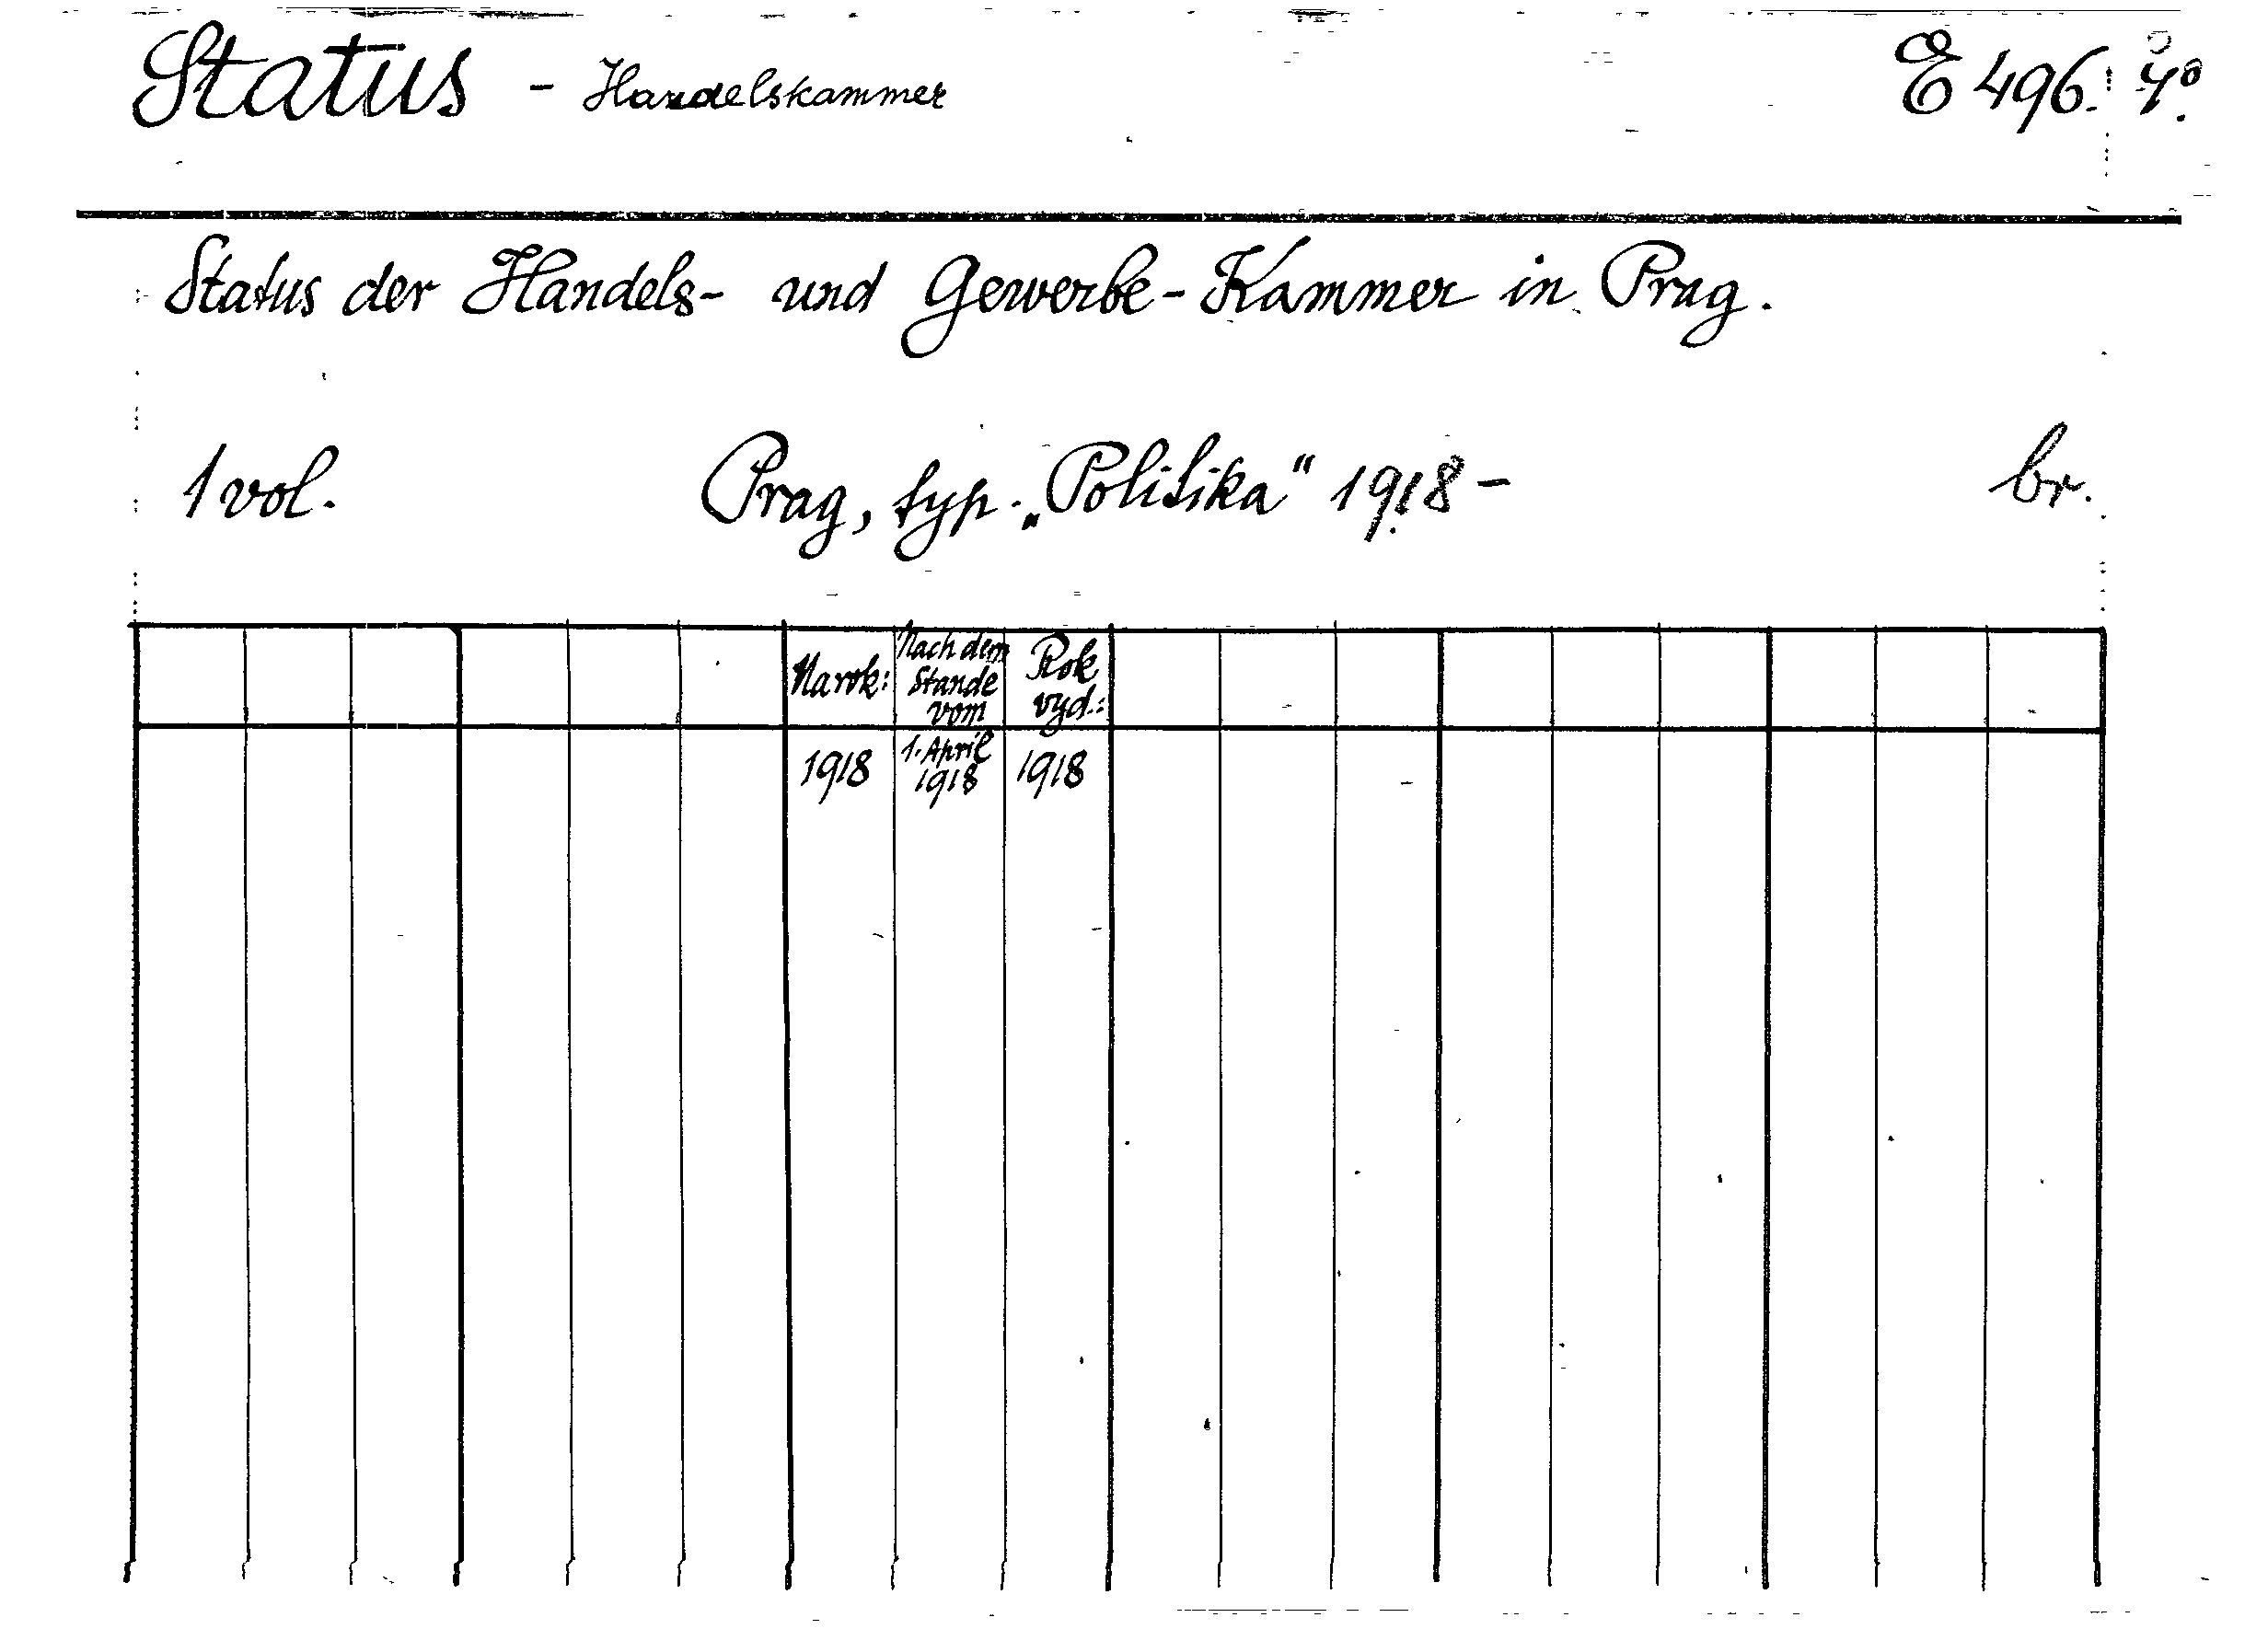 Status - Handelskammer E 496. 4°.
Status der Handels- und Gewerbe-Kammer in Prag.
1 vol. Prag, typ. „Politika“ 1918 - br.
Na rok: Nach dem Stande vom Rok vyd.:
1918 1. April 1918 1918